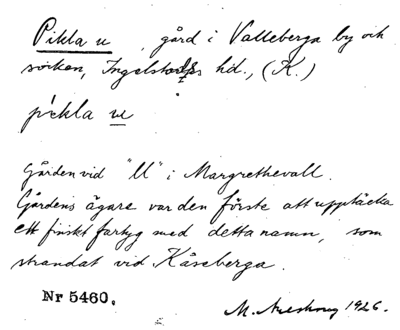 Pikla u , gård i Valleberga by och
socken, Ingelstads hd., (K.)
pikla u
Gården vid "U" i Margrethevall.
Gårdens ägare var den förste att upptäcka
ett finskt fartyg med detta namn, som
strandat vid Kåseberga.
Nr 5460.
M. 1926.